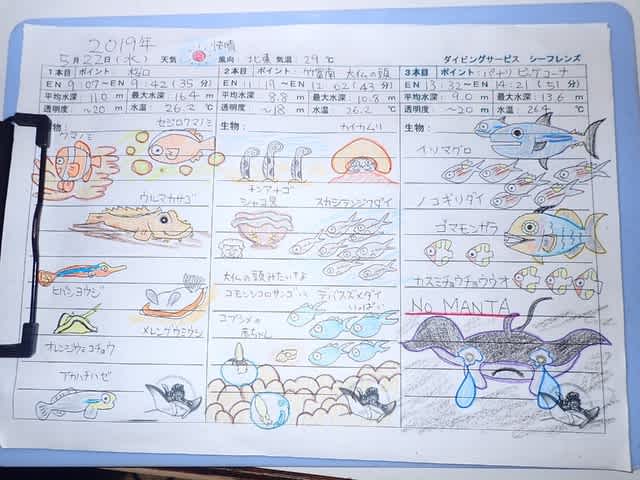 2019年
5月22日(水) 天気 快晴 風向 北東 気温 29℃
ダイビングサービス シーフレンズ
1本目 ポイント:
EN 9:07〜EN 9:42(35分)
平均水深 11.0m 最大水深 16.4m
透明度 〜20m 水温 26.2℃
生物:
クマノミ
セジロクマノミ
ウルマカサゴ
ヒバシヨウジ
メレンゲウミウシ
オレンジウミコチョウ
アカハチハゼ
2本目 ポイント: 竹富南 大仏の頭
(43分)
平均水深 8.8m 最大水深 10.8m
透明度 〜18m 水温 26.2℃
生物:
カイカムリ
チンアナゴ
シャコ貝
スカシテンジクダイ
大仏の頭みたいなよ
コモンシコロサンゴに デバスズメダイ
いっぱい
コブシメの
赤ちゃん
3本目 ポイント: パナリ ビッグコーナー
EN 13:32〜EN 14:21(51分)
平均水深 9.0m 最大水深 13.6m
透明度 〜20m 水温 26.4℃
生物:
イソマグロ
ノコギリダイ
ゴマモンガラ
カスミチョウチョウウオ
NO MANTA